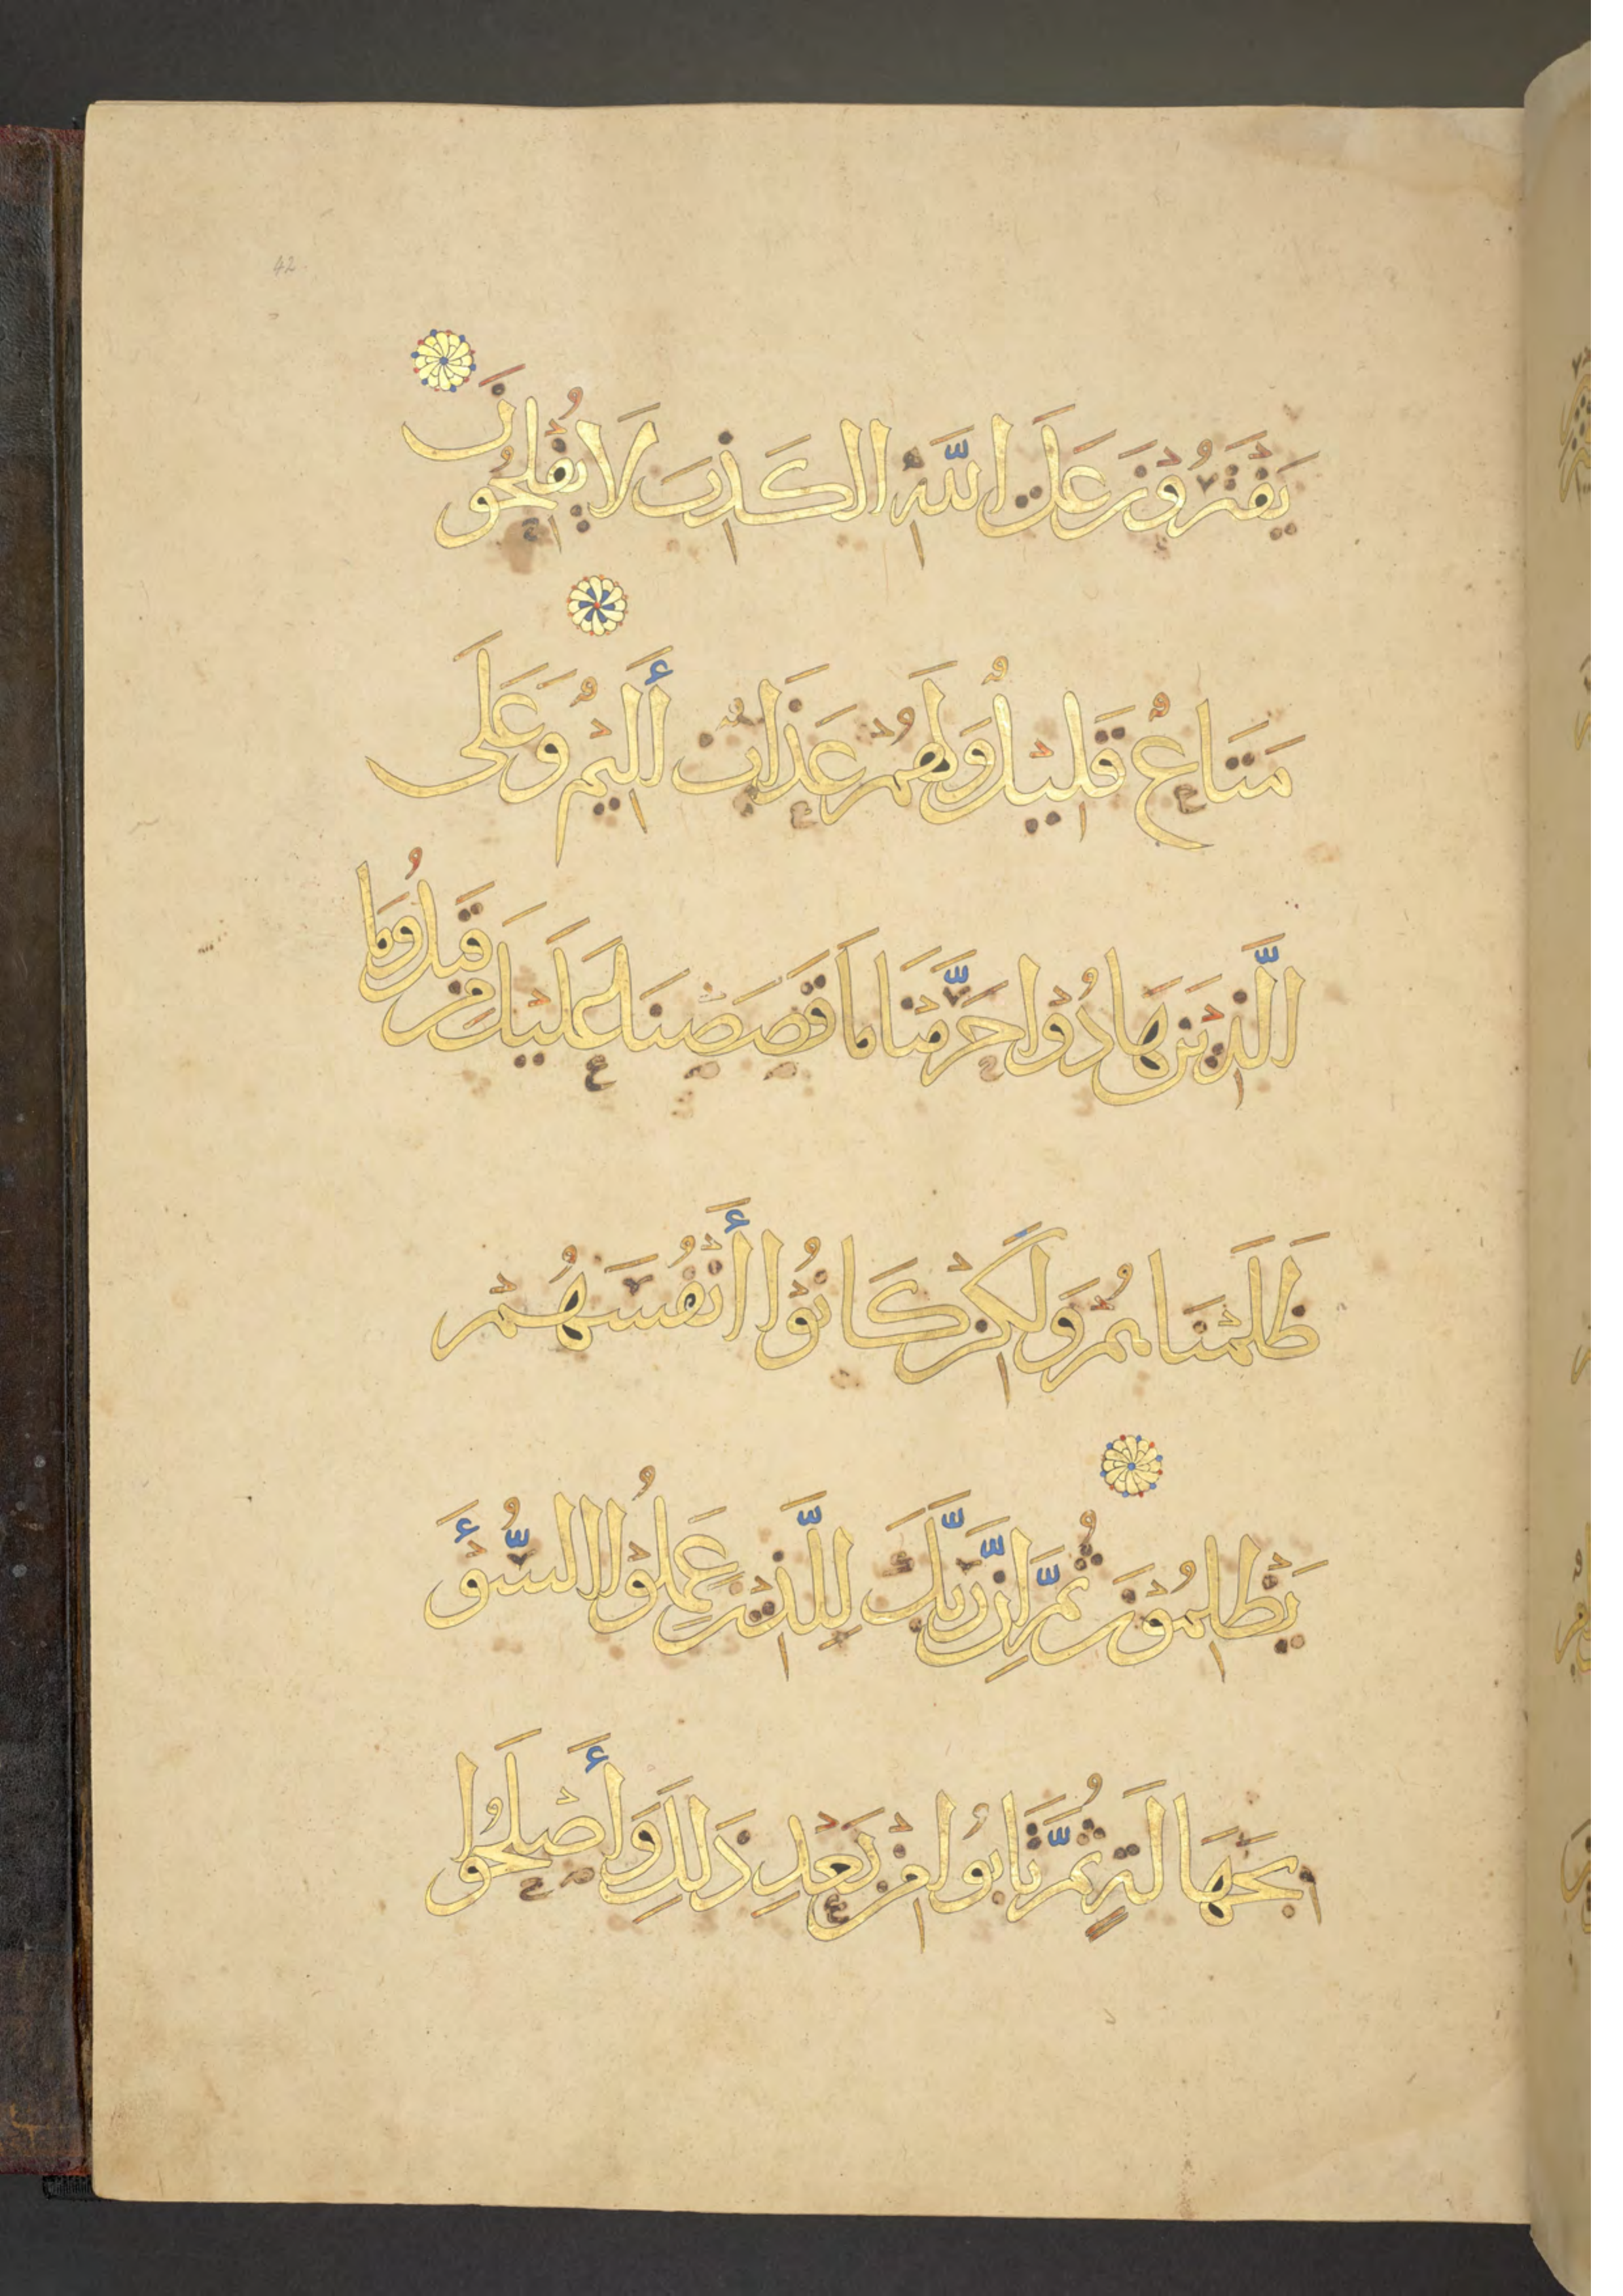 42
يَفْتَرُوْنَ عَلَى اللّٰهِ الكَذِبَ لَا يُفْلِحُوْنَ
مَتَاعٌ قَلِيْلٌ وَلَهُمْ عَذَابٌ أَلِيْمٌ وَعَلَى
الَّذِيْنَ هَادُوْا حَرَّمْنَا مَا قَصَصْنَا عَلَيْكَ مِنْ قَبْلُ وَمَا
ظَلَمْنَاهُمْ وَلَكِنْ كَانُوْا أَنْفُسَهُمْ
يَظْلِمُوْنَ ثُمَّ اِنَّ رَبَّكَ لِلَّذِيْنَ عَمِلُوْا السُّوْءَ
بِجَهَالَةٍ ثُمَّ تَابُوا مِنْ بَعْدِ ذَلِكَ وَأَصْلَحُوا